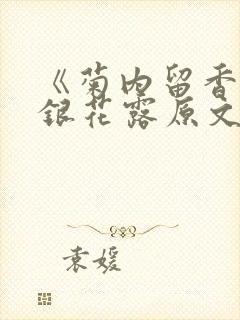 《菊内留香
银花露原文
袁媛